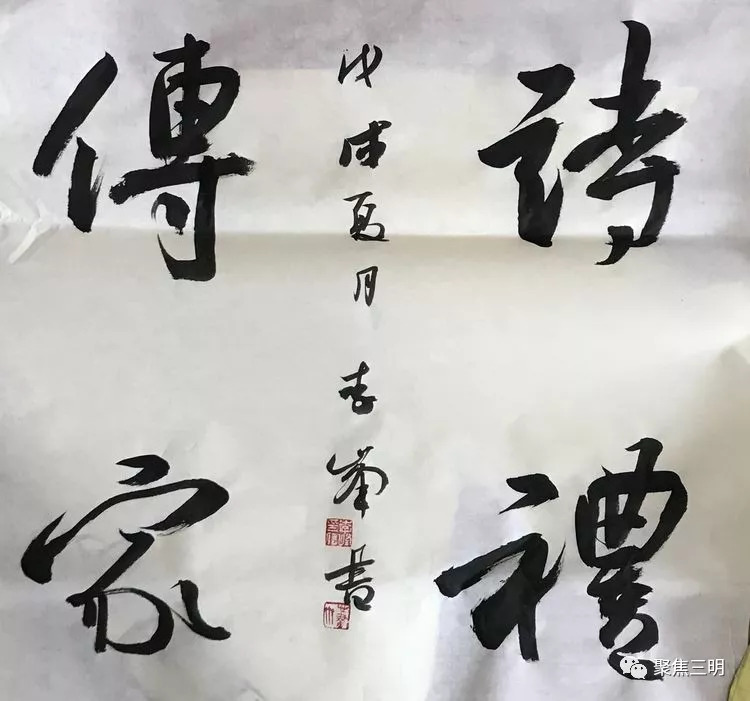 詩禮
傳家
戊戌夏月李峰書
聚焦三明